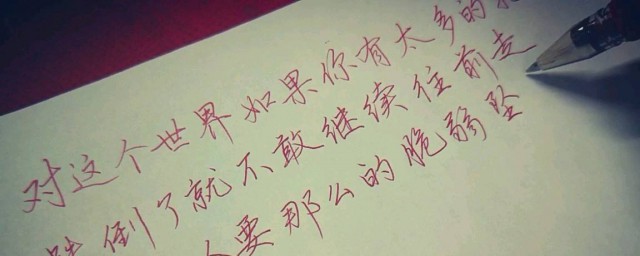 对这个世界如果你有太多的
倒了就不敢继续往前走
要那么的脆弱坠